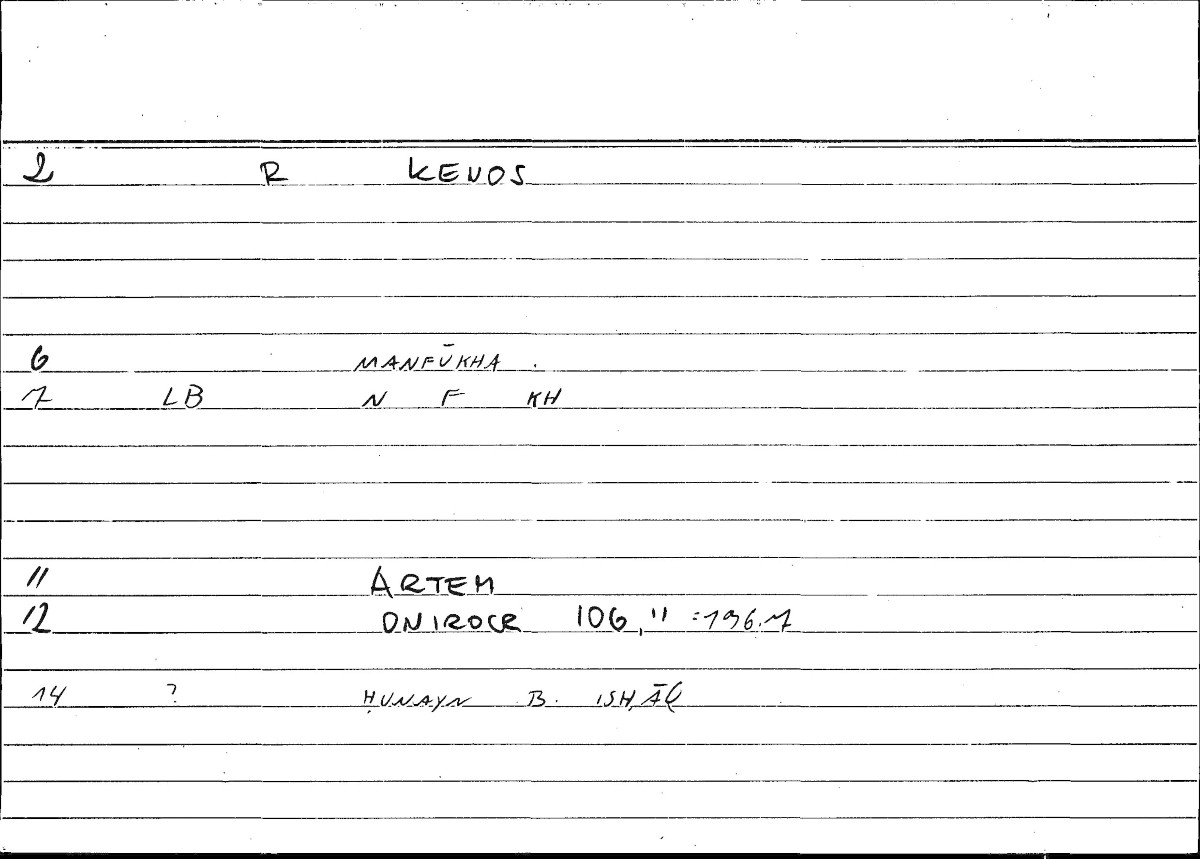 2 R KENOS
6 MANFŪKHA .
7 LB N F KH
11 ARTEM
12 ONIROCR 106,11 =196.7
14 ? ḤUNAYN B. ISḤĀQ